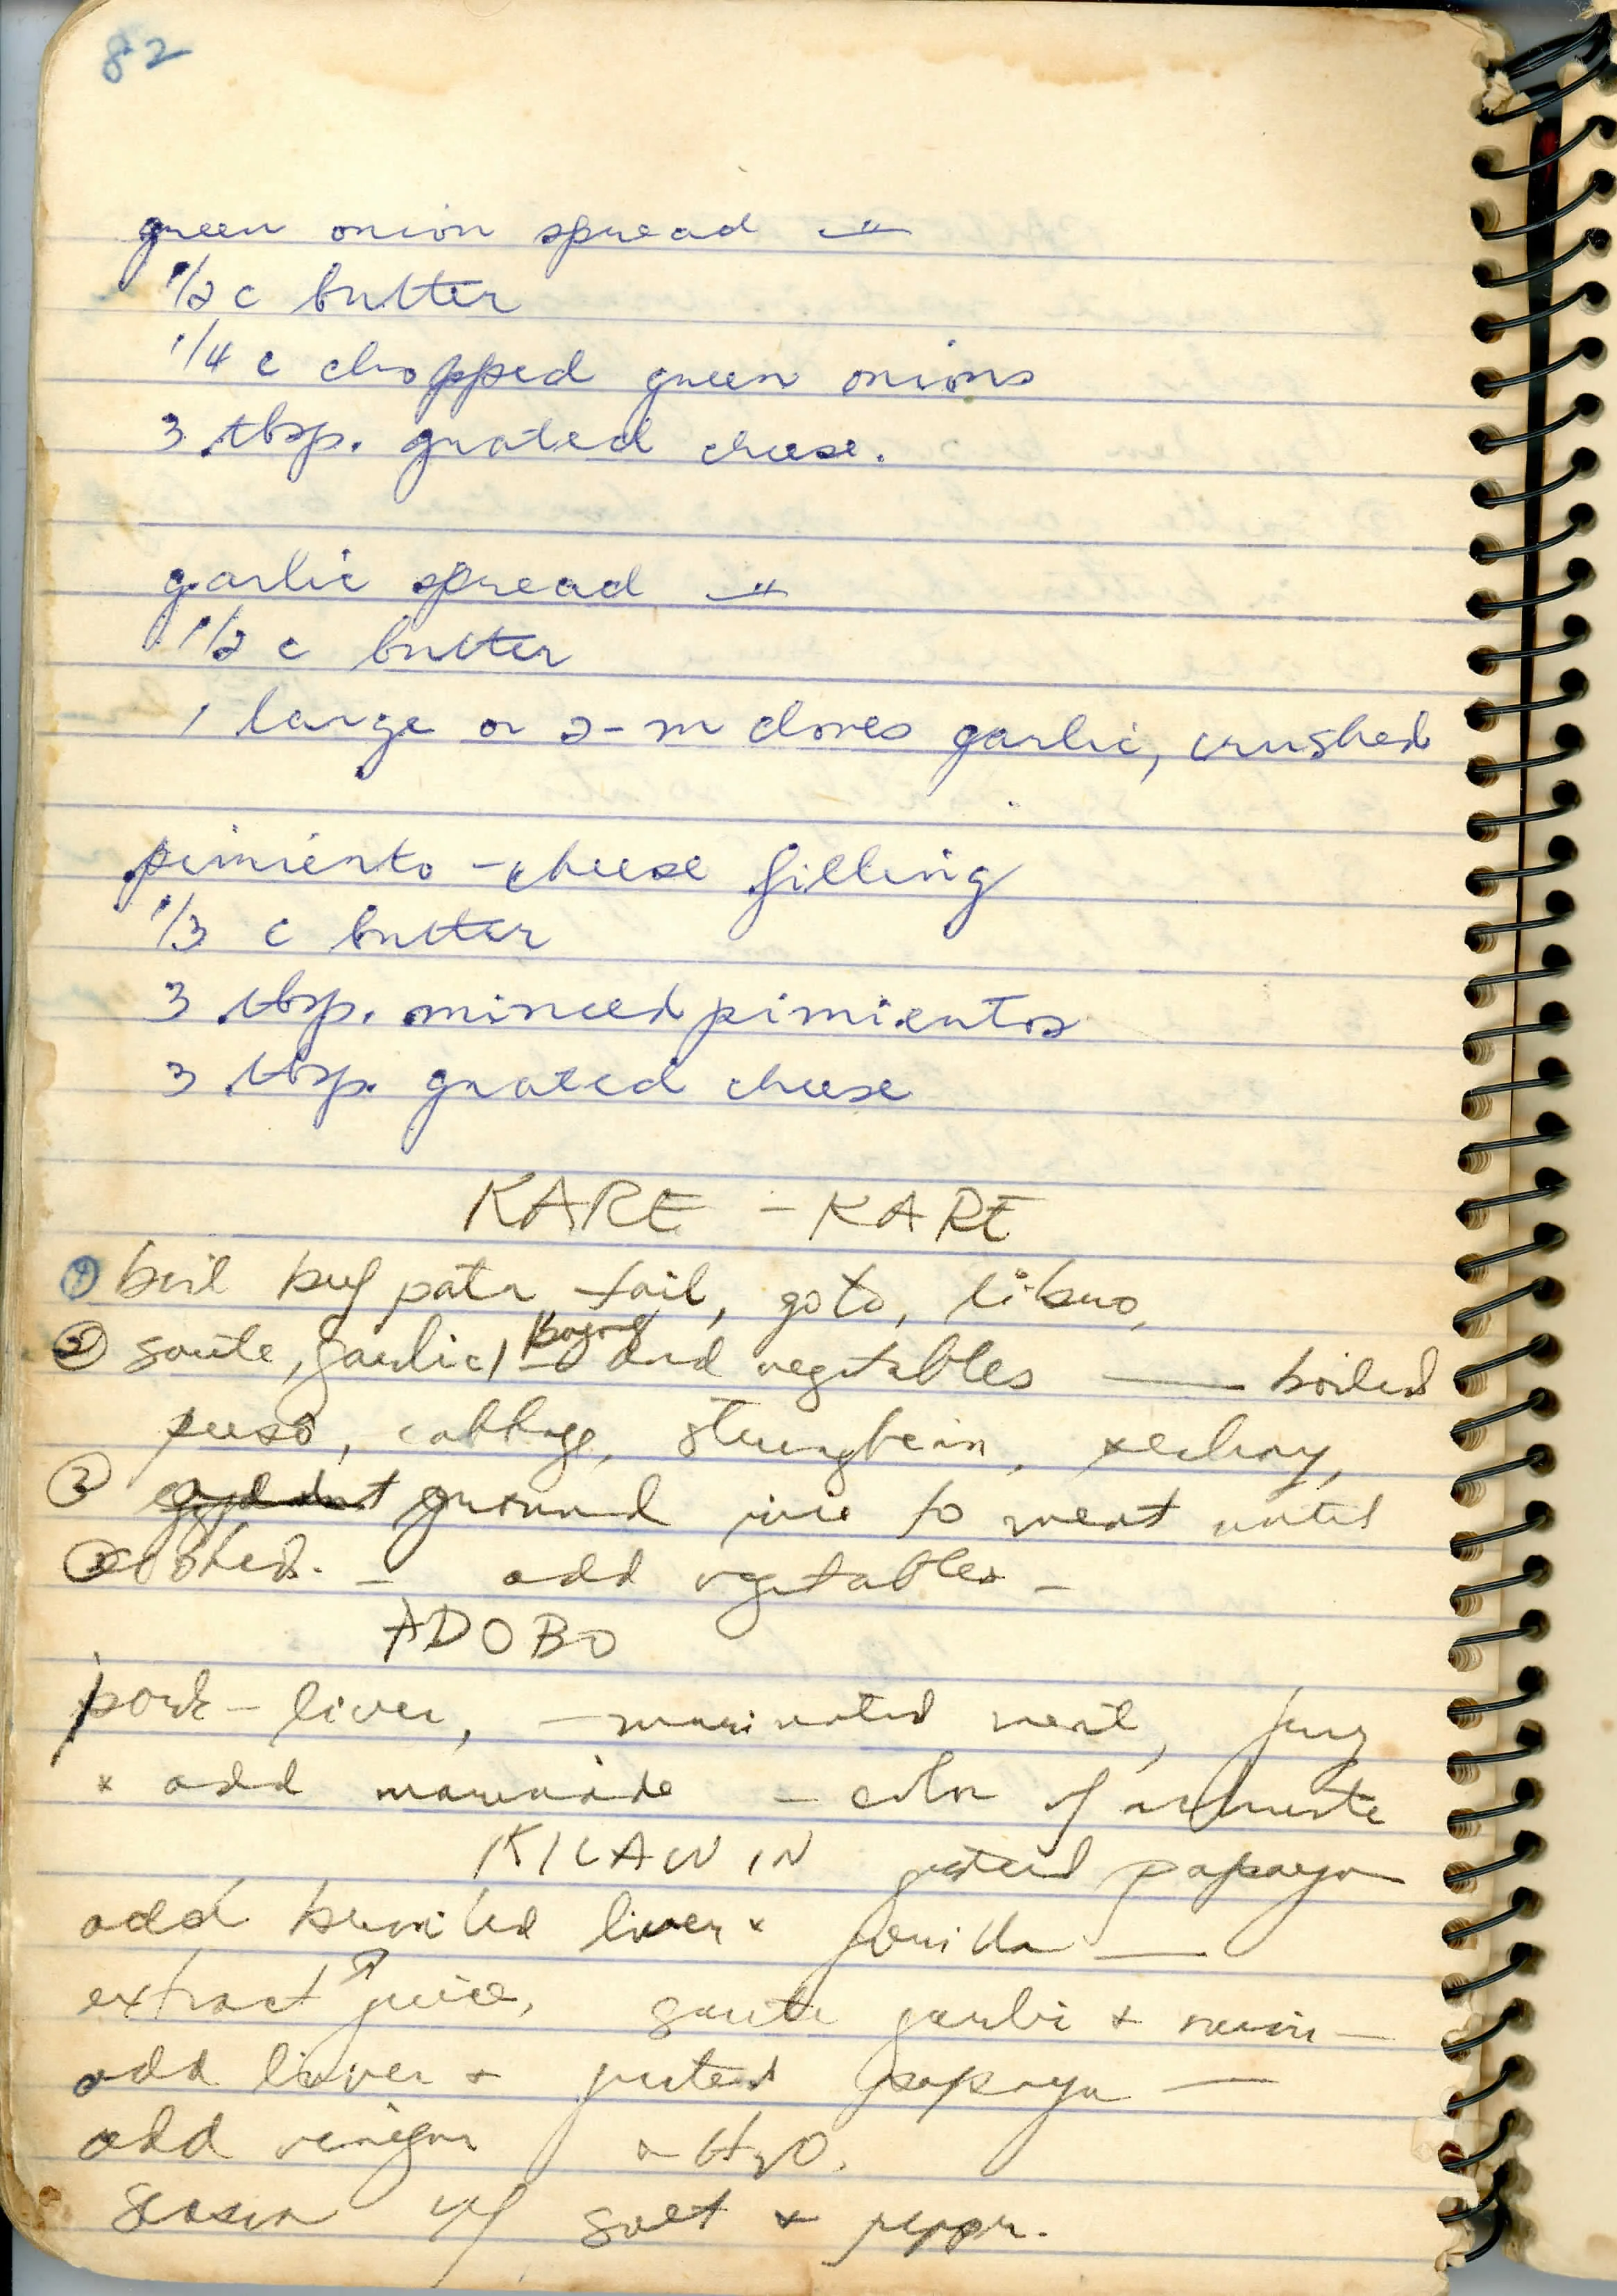 82
green onion spread —"
1/2 c butter
1/4 c chopped green onions
3 tbsp. grated cheese.
garlic spread —"
1/2 c butter
1 large or 2-m cloves garlic, crushed
pimiento-cheese filling
1/3 c butter
3 tbsp. minced pimientos
3 tbsp. grated cheese
KARE - KARE
① boil beef pata tail, goto, libro,
② saute, garlic, and vegetables — boiled
puso, cabbage, stringbean,
③ ground rice to meat until
cooked. - add vegetables -
ADOBO
pork - liver, - marinated meat, fry
+ add marinade - color of
KILAWIN grated papaya
add broiled liver +
extract juice, saute garlic + onion —
add liver + grated papaya —
add vinegar H2O.
season w/ salt + pepper.